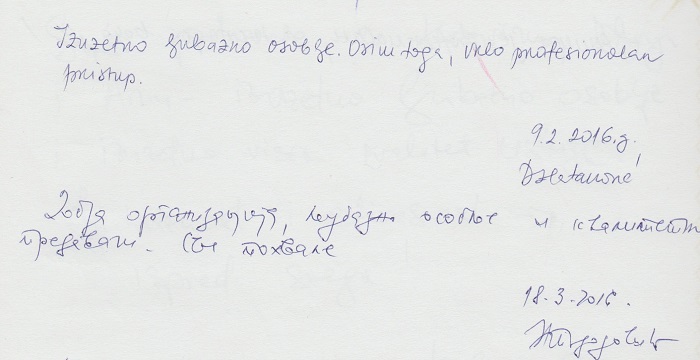 Izuzetno ljubazno osoblje. Osim toga, vrlo profesionalan
pristup.
9.2.2016.g.
Добра организација, љубазно особље и квалитетни
предавачи. Све похвале
18.3.2016.